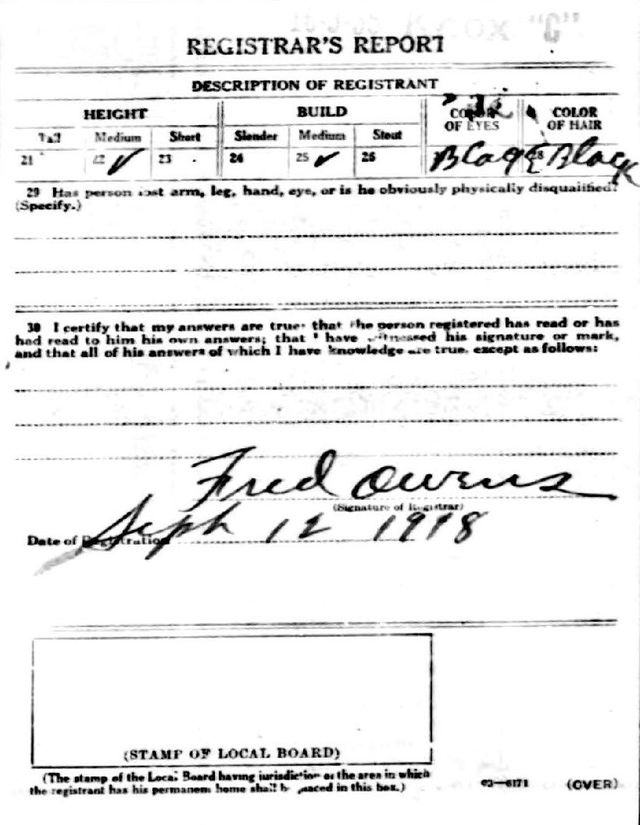 REGISTRAR'S REPORT
DESCRIPTION OF REGISTRANT
HEIGHT BUILD COLOR OF EYES COLOR OF HAIR
Tall Medium Short Slender Medium Stout
21 22 ✓ 23 24 25 ✓ 26 Black 28 Black
29 Has person lost arm, leg, hand, eye, or is he obviously physically disqualified?
(Specify.)
30 I certify that my answers are true; that the person registered has read or has
had read to him his own answers; that I have witnessed his signature or mark,
and that all of his answers of which I have knowledge are true, except as follows:
Fred Owens
(Signature of Registrar)
Date of Registration Sept 12 1918
(STAMP OF LOCAL BOARD)
(The stamp of the Local Board having jurisdiction of the area in which
the registrant has his permanent home shall be placed in this box.)
03—6171 (OVER)